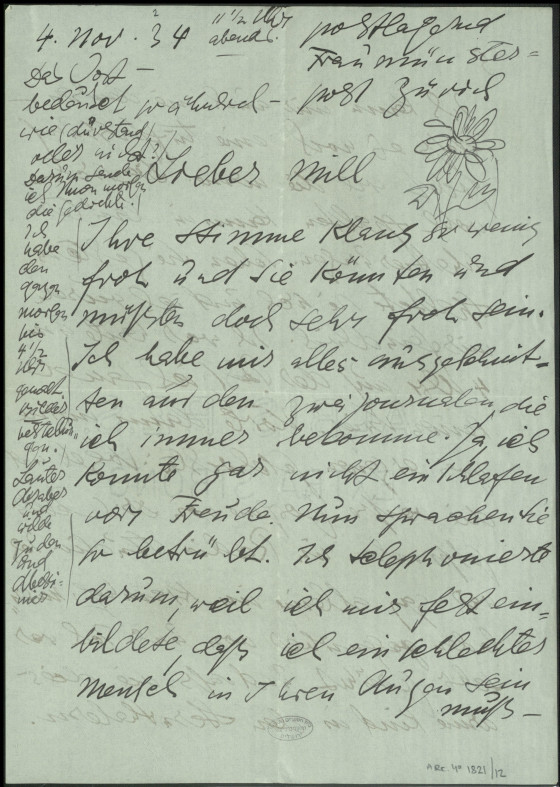 4. Nov. 34 11 1/2 Uhr
abends.
postlagernd
Fraumünster=
post Zürich
Das Wort –
bedeutet so ähnlich –
wie (dürstend)
oder nicht?
Darum sende
ich schon morgen
die Gedichte!
Lieber Mill
Ihre Stimme klang so wenig
froh und Sie könnten und
müßten doch sehr froh sein.
Ich habe mir alles ausgeschnit-
ten aus den zwei Journalen, die
ich immer bekomme. Ja, ich
konnte gar nicht einschlafen
vor Freude. Nun sprachen Sie
so betrübt. Ich telephonierte
darum, weil ich mir fest ein=
bildete, daß ich ein schlechter
Mensch in Ihren Augen sein
muß –
Ich
habe
den
ganzen
morgen
bis
4 1/2
Uhr
gemalt
Bilder
Lauter
Araber
und
wilde
Juden
und
Abessi=
nier
ARC. 4º 1821/12